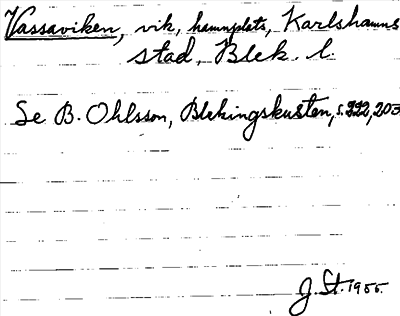 Vassaviken, vik, hamnplats, Karlshamns
stad, Blek. l.
Se B. Ohlsson, Blekingskusten, s. 222, 203
J. St. 1955.